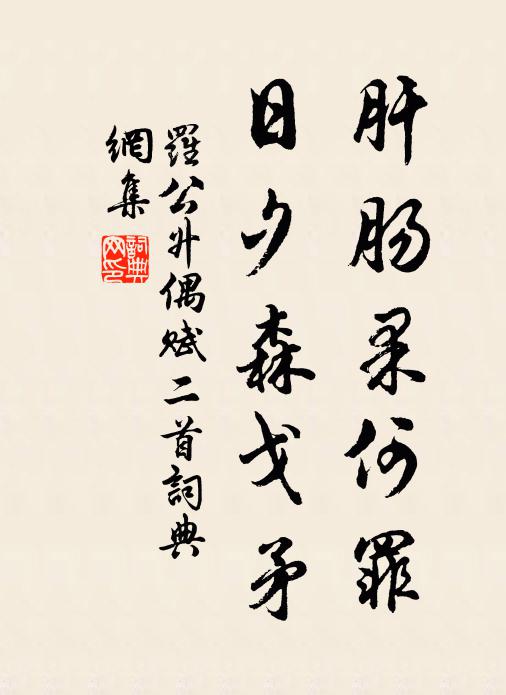 肝肠果何罪
日夕森戈矛
羅公升偶赋二首詞典
網集
詞典
网印